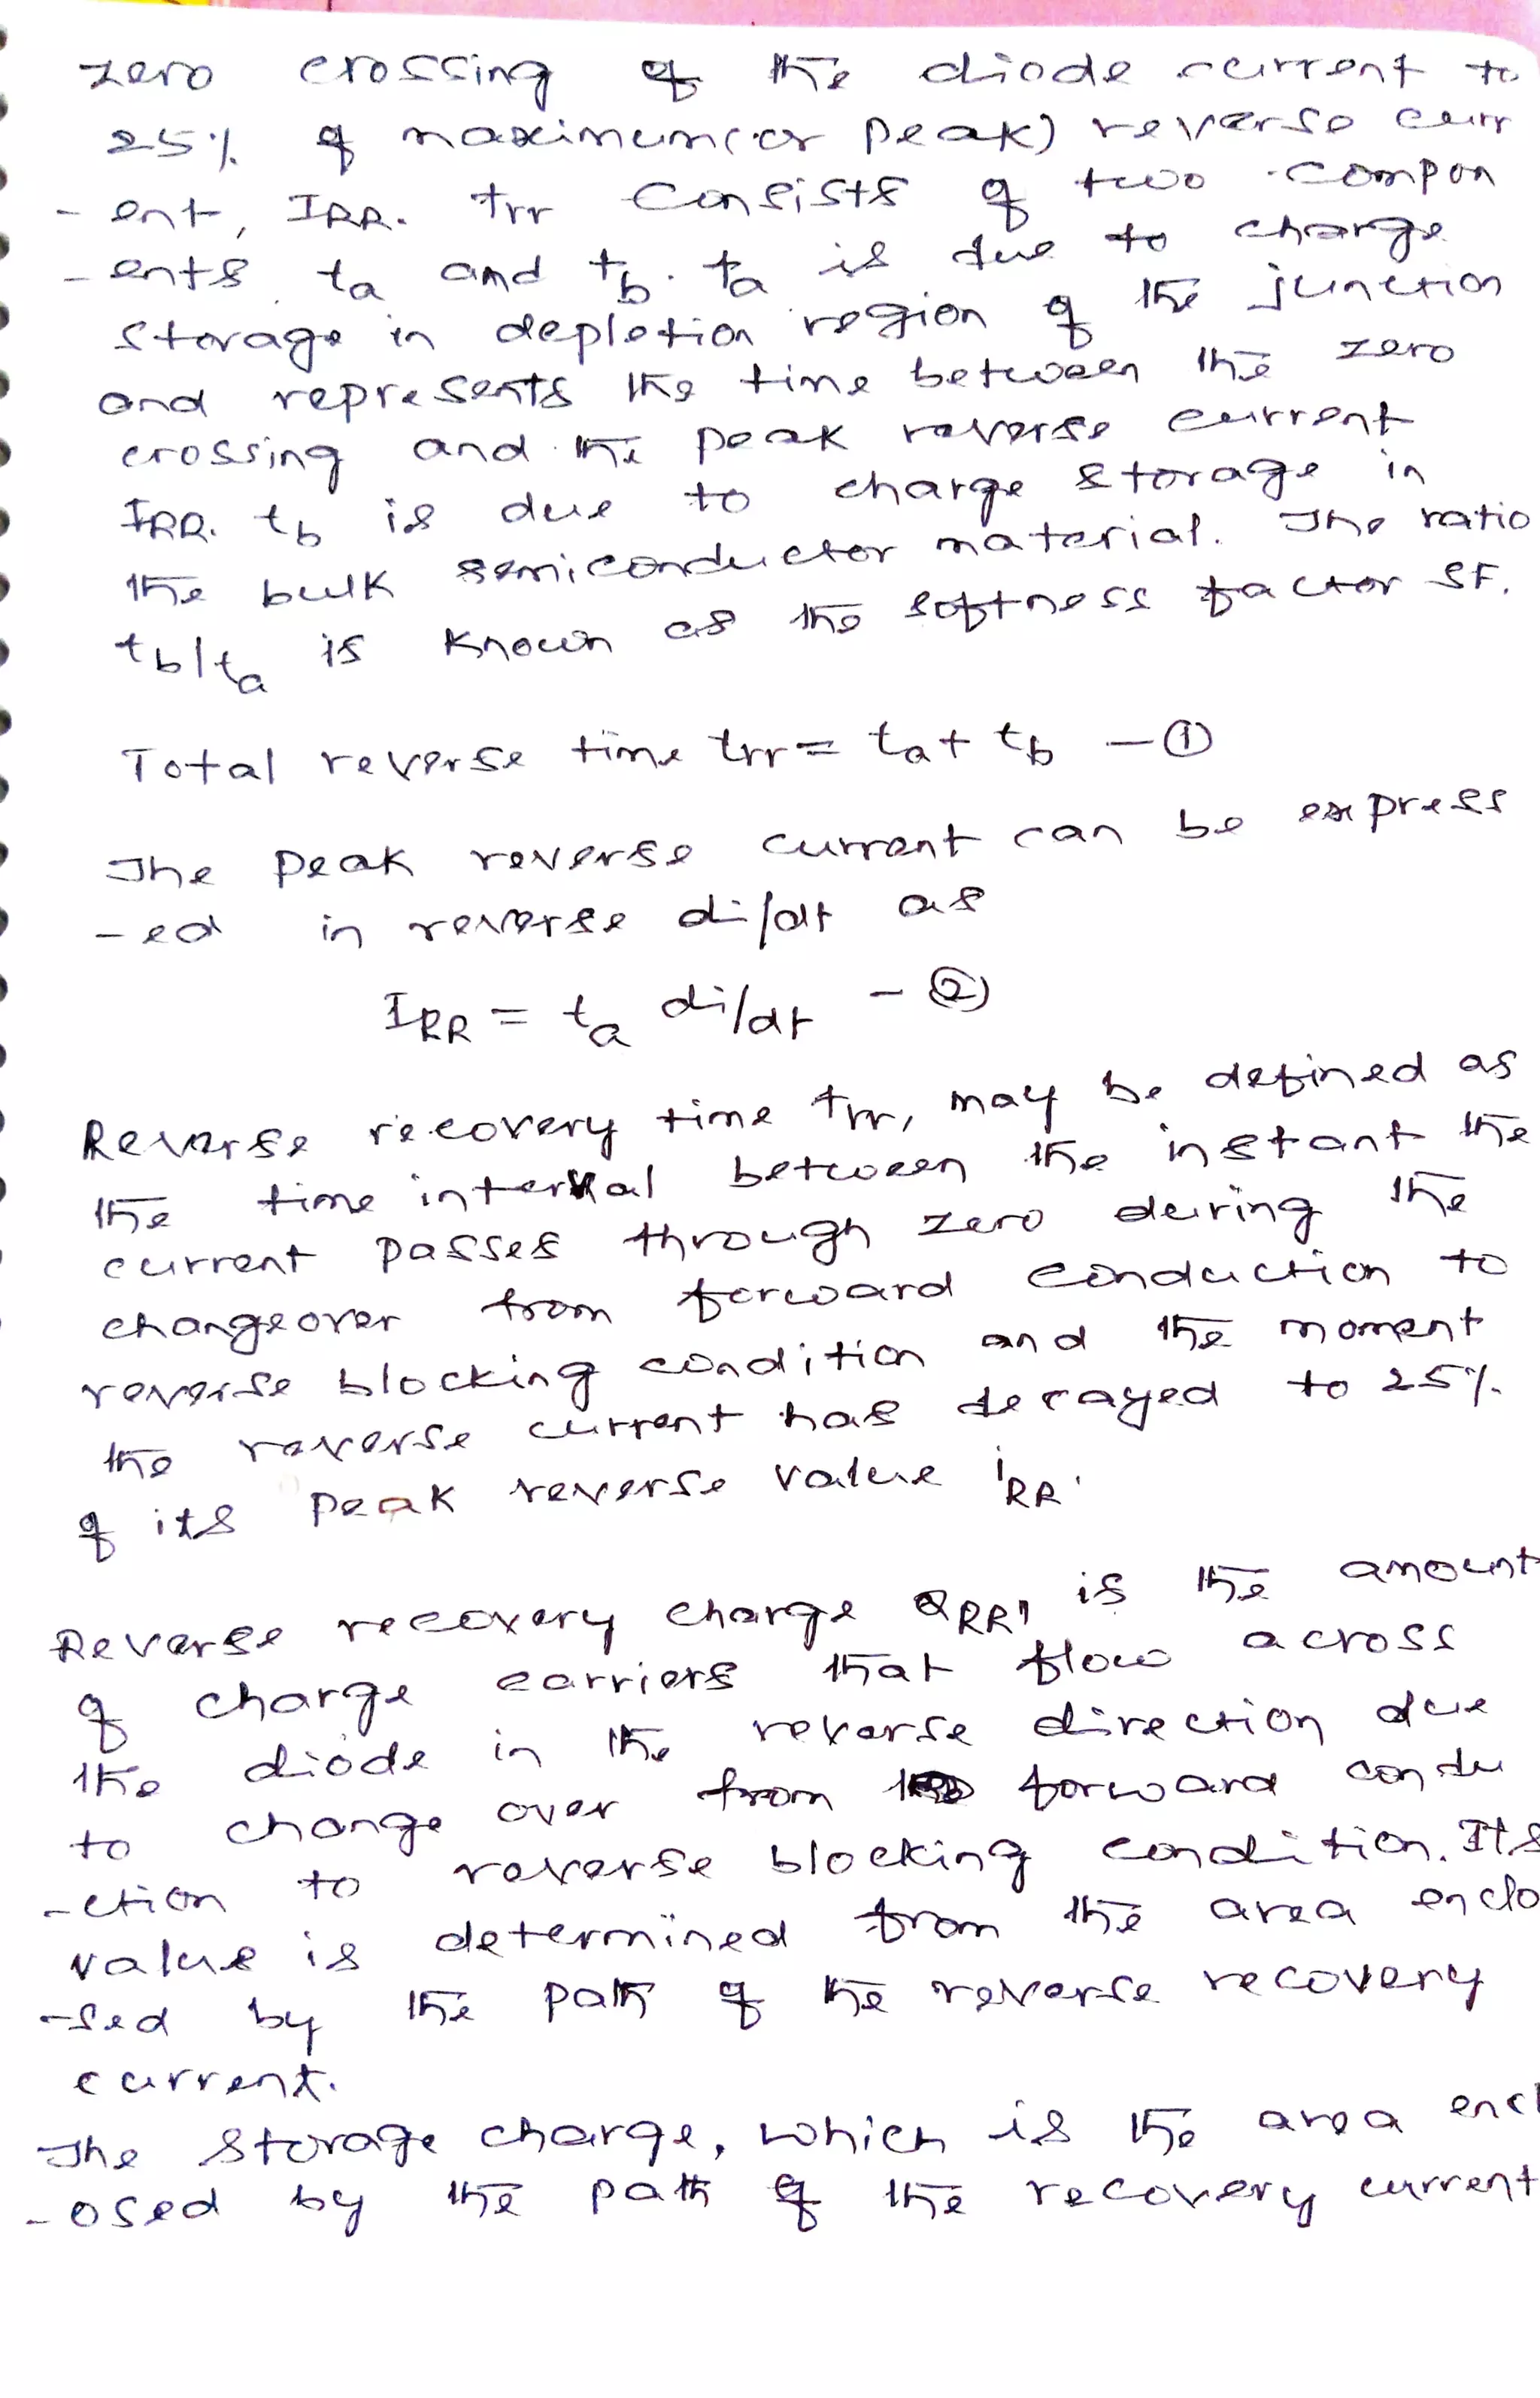 zero crossing of the diode current to
25% of maximum (or peak) reverse curr
- ent, IRR. trr consists of two compon
- ents ta and tb. ta is due to charge
storage in depletion region of the junction
and represents the time between the zero
crossing and the peak reverse current
IRR. tb is due to charge storage in
the bulk semiconductor material. The ratio
tb/ta is known as the softness factor SF.
Total reverse time trr = ta + tb - ①
The peak reverse current can be express
- ed in reverse di/dt as
IRR = ta di/dt - ②
Reverse recovery time trr, may be defined as
the time interval between the instant the
current passes through zero during the
changeover from forward conduction to
reverse blocking condition and the moment
the reverse current has decayed to 25%
of its peak reverse value iRR.
Reverse recovery charge QRR, is the amount
of charge carriers that flow across
the diode in the reverse direction due
to change over from forward condu
- ction to reverse blocking condition. Its
value is determined from the area enclo
- sed by the path of the reverse recovery
current.
The storage charge, which is the area encl
- osed by the path of the recovery current